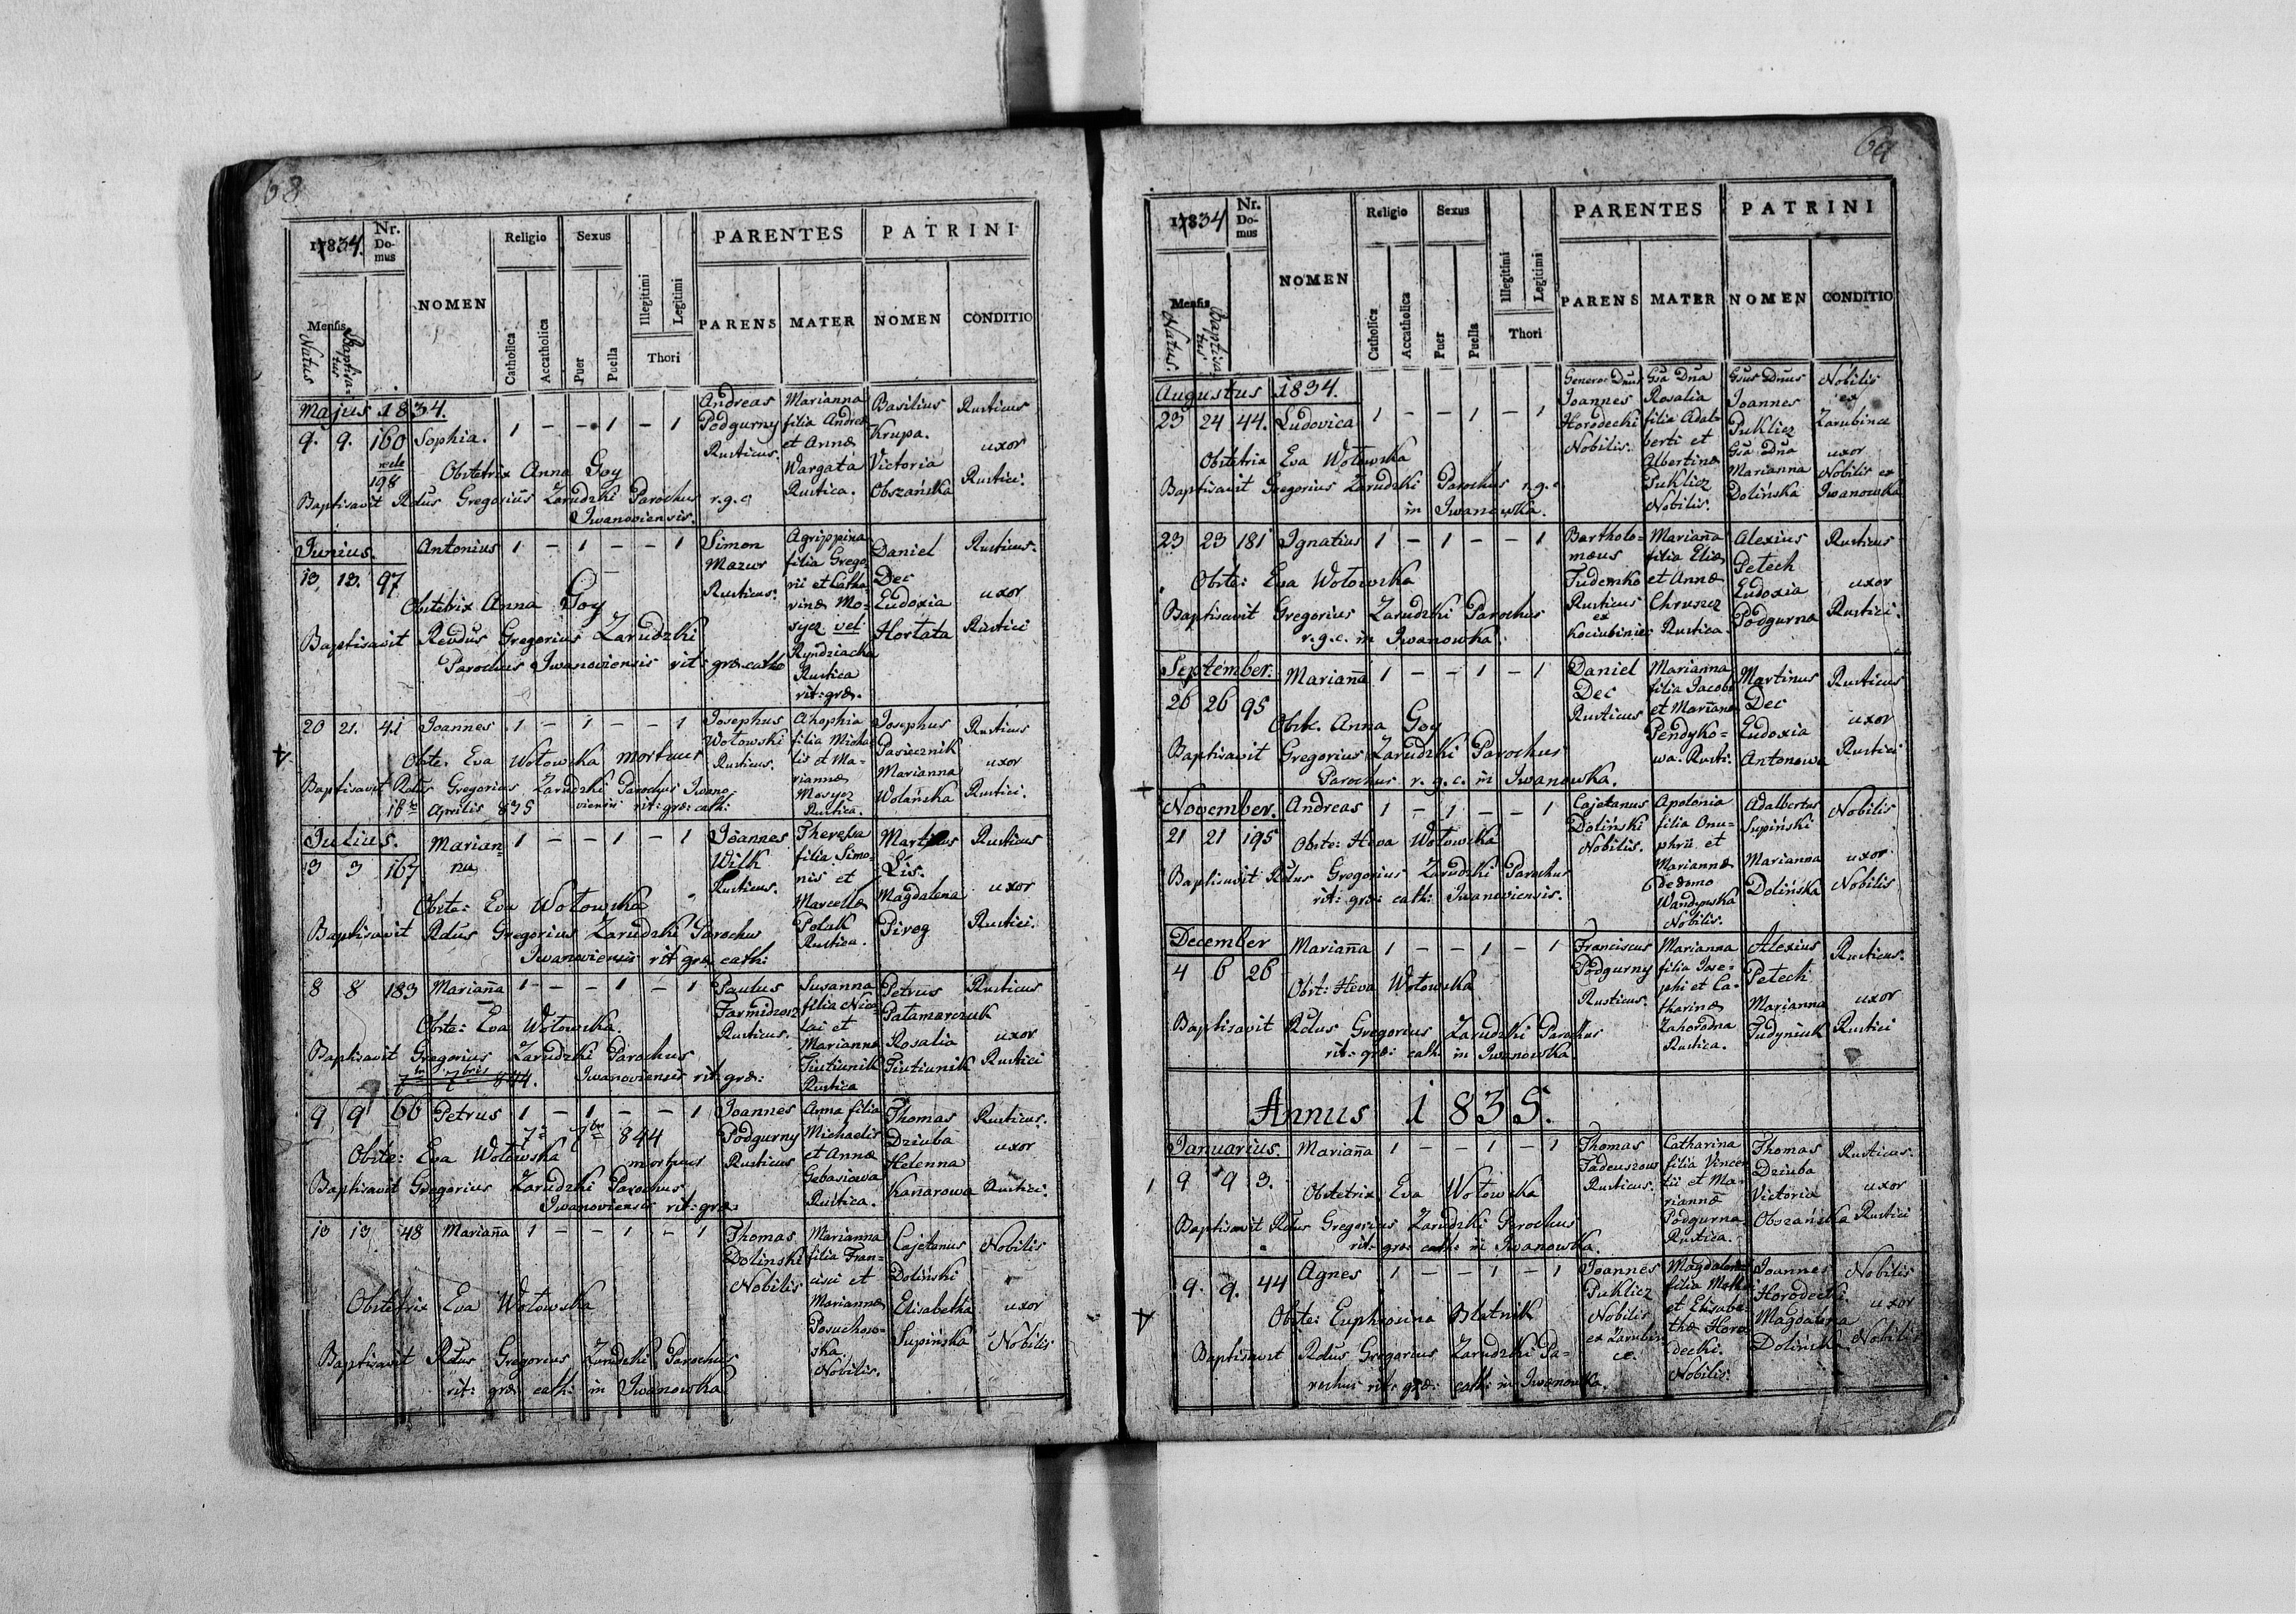 68
17834.
Nr. Domus
Mensis
Natus
Baptisatus
NOMEN
Religio
Catholica
Accatholica
Sexus
Puer
Puella
Illegitimi
Legitimi
Thori
PARENTES
PARENS
MATER
PATRINI
NOMEN
CONDITIO
Majus 1834.
9. 9. 160 Sophia. 1 - - 1 - 1
recte 198
Andreas
Podgurny
Rusticus.
Marianna
filia Andreæ
et Annæ
Wargata
Rustica.
Basilius
Krupa.
Victoria
Obszańska
Rusticus
uxor
Rustici.
Obstetrix Anna Goy
Baptisavit Rdus Gregorius Zarudzki Parochus r.g.c.
Iwanoviensis.
Junius.
13. 13. 97 Antonius 1 - 1 - - 1
Simon
Mazur
Rusticus.
Agrippina
filia Grego
rii et Catha
rinæ Mo-
sycz vel
Ryndziacha
Rustica
rit: græ.
Daniel
Dec
Eudoxia
Hortata
Rusticus.
uxor
Rustici
Obstetrix Anna Goy
Baptisavit Revdus Gregorius Zarudzki
Parochus Iwanoviensis rit: græ. catho
20 21. 41 Joannes 1 - 1 - - 1
Josephus
Wołowski
Rusticus.
Ahaphia
filia Micha
lis et Ma-
riannæ
Mosycz
Rustica.
Josephus
Pasiecznik
Marianna
Wolańska
Rusticus
uxor
Rustici.
Obste. Eva Wołowska mortuus
Baptisavit Rdus Gregorius Zarudzki Parochus Iwano
viensis rit: græ: cath:
18 Aprilis 835
Julius.
3 3 167 Marian-
na 1 - - 1 - 1
Joannes
Wilk
Rusticus.
Theressa
filia Simo-
nis et
Marcellæ
Polak
Rustica.
Martinus
Lis.
Magdalena
Pirog
Rusticus
uxor
Rustici.
Obste: Eva Wołowska
Baptisavit Rdus Gregorius Zarudzki Parochus
Iwanoviensis rit græ. cath:
8 8 183 Mariana 1 - - 1 - 1
Paulus
Rusticus.
Susanna
filia Nico
lai et
Mariannæ
Tiutiunik
Rustica
Petrus
Patamarczuk
Rosalia
Tiutiunik
Rusticus
uxor
Rustici
Obste: Eva Wołowska.
Baptisavit Gregorius Zarudzki Parochus
Iwanoviensis rit: græ:
7bris 844.
9 9 66 Petrus 1 - 1 - - 1
Joannes
Podgurny
Rusticus
Anna filia
Michaelis
et Annæ
Gebasiowa
Rustica.
Thomas
Dziuba
Helenna
Kanarowa
Rusticus.
uxor
Rustici.
7 7br 844
mortuus
Obste: Eva Wołowska
Baptisavit Gregorius Zarudzki Parochus
Iwanoviensis rit: græ:
13 13 48 Mariana 1 - - 1 - 1
Thomas
Dolinski
Nobilis
Marianna
filia Fran-
cisci et
Mariannæ
Posuchow-
ska.
Nobilis.
Cajetanus
Doliński
Elisabetha
Supińska
Nobilis
uxor
Nobilis
Obstetrix Eva Wołowska
Baptisavit Rdus Gregorius Zarudzki Parochus
rit: græ: cath: in Iwanowka
69
17834
Nr. Domus
Mensis
Natus.
Baptisatus
NOMEN
Religio
Catholica
Accatholica
Sexus
Puer
Puella
Illegitimi
Legitimi
Thori
PARENTES
PARENS
MATER
PATRINI
NOMEN
CONDITIO
Augustus 1834.
23 24 44. Ludovica 1 - - 1 - 1
Generos Dnus
Joannes
Horodecki
Nobilis.
Gsa Dna
Rosalia
filia Adal-
berti et
Albertinæ
Puklicz
Nobilis.
Gsus Dnus
Joannes
Puklicz
Gsa Dna
Marianna
Dolińska
Nobilis
ex
Zarubince
uxor
Nobilis ex
Iwanowka
Obstetrix Eva Wołowska
Baptisavit Gregorius Zarudzki Parochus r.g.c
in Iwanowka.
23 23 181 Ignatius 1 - 1 - - 1
Bartholo-
mæus
Fudemko
Rusticus
ex
Kociubiniec
Mariana
filia Eliæ
et Annæ
Chruszcz
Rustica.
Alexius
Petech
Eudoxia
Podgurna
Rusticus
uxor
Rustici.
Obste: Eva Wołowska
Baptisavit Gregorius Zarudzki Parochus
r.g.c. in Iwanowka.
September.
26 26 95 Mariana 1 - - 1 - 1
Daniel
Dec
Rusticus
Marianna
filia Jacobi
et Mariannæ
Pendyko-
wa. Rusti:
Martinus
Dec
Eudoxia
Antonowa
Rusticus
uxor
Rustici
Obste. Anna Goy
Baptisavit Gregorius Zarudzki Parochus
Parochus r.g.c. in Iwanowka.
November.
21 21 195 Andreas 1 - 1 - - 1
Cajetanus
Doliński
Nobilis.
Apolonia
filia Onu-
phrii et
Mariannæ
de domo
Nobilis.
Adalbertus
Supiński
Marianna
Dolińska
Nobilis
uxor
Nobilis
Obste: Heva Wołowska
Baptisavit Rdus Gregorius Zarudzki Parochus
rit: græ: cath: Iwanoviensis.
December
4 6 26 Mariana 1 - - 1 - 1
Franciscus
Podgurny
Rusticus.
Marianna
filia Jose-
phi et Ca-
tharinæ
Zahorodna
Rustica.
Alexius
Petech
Marianna
Judyniuk
Rusticus.
uxor
Rustici
Obst: Heva Wołowska
Baptisavit Rdus Gregorius Zarudzki Parochus
rit: græ: cath in Iwanowka.
Annus 1835.
Januarius.
9 9 3. Mariana 1 - - 1 - 1
Thomas
Tadeuszow
Rusticus.
Catharina
filia Vincen
tii et Ma-
riannæ
Podgurna
Rustica.
Thomas
Dziuba
Victoria
Obszańska
Rusticus.
uxor
Rustici
Obstetrix Eva Wołowska
Baptisavit Rdus Gregorius Zarudzki Parochus
rit: græ: cath: in Iwanowka.
9. 9. 44 Agnes 1 - - 1 - 1
Joannes
Puklicz
Nobilis
ex Zarubin
ce.
Magdalena
filia Mathi
et Elisabe-
thæ Horo
decki.
Nobilis.
Joannes
Horodecki.
Magdalena
Dolińska
Nobilis
uxor
Nobilis
Obste: Euphrosina Blatnik
Baptisavit Rdus Gregorius Zarudzki Pa-
rochus rit: græ: cath: in Iwanowka.